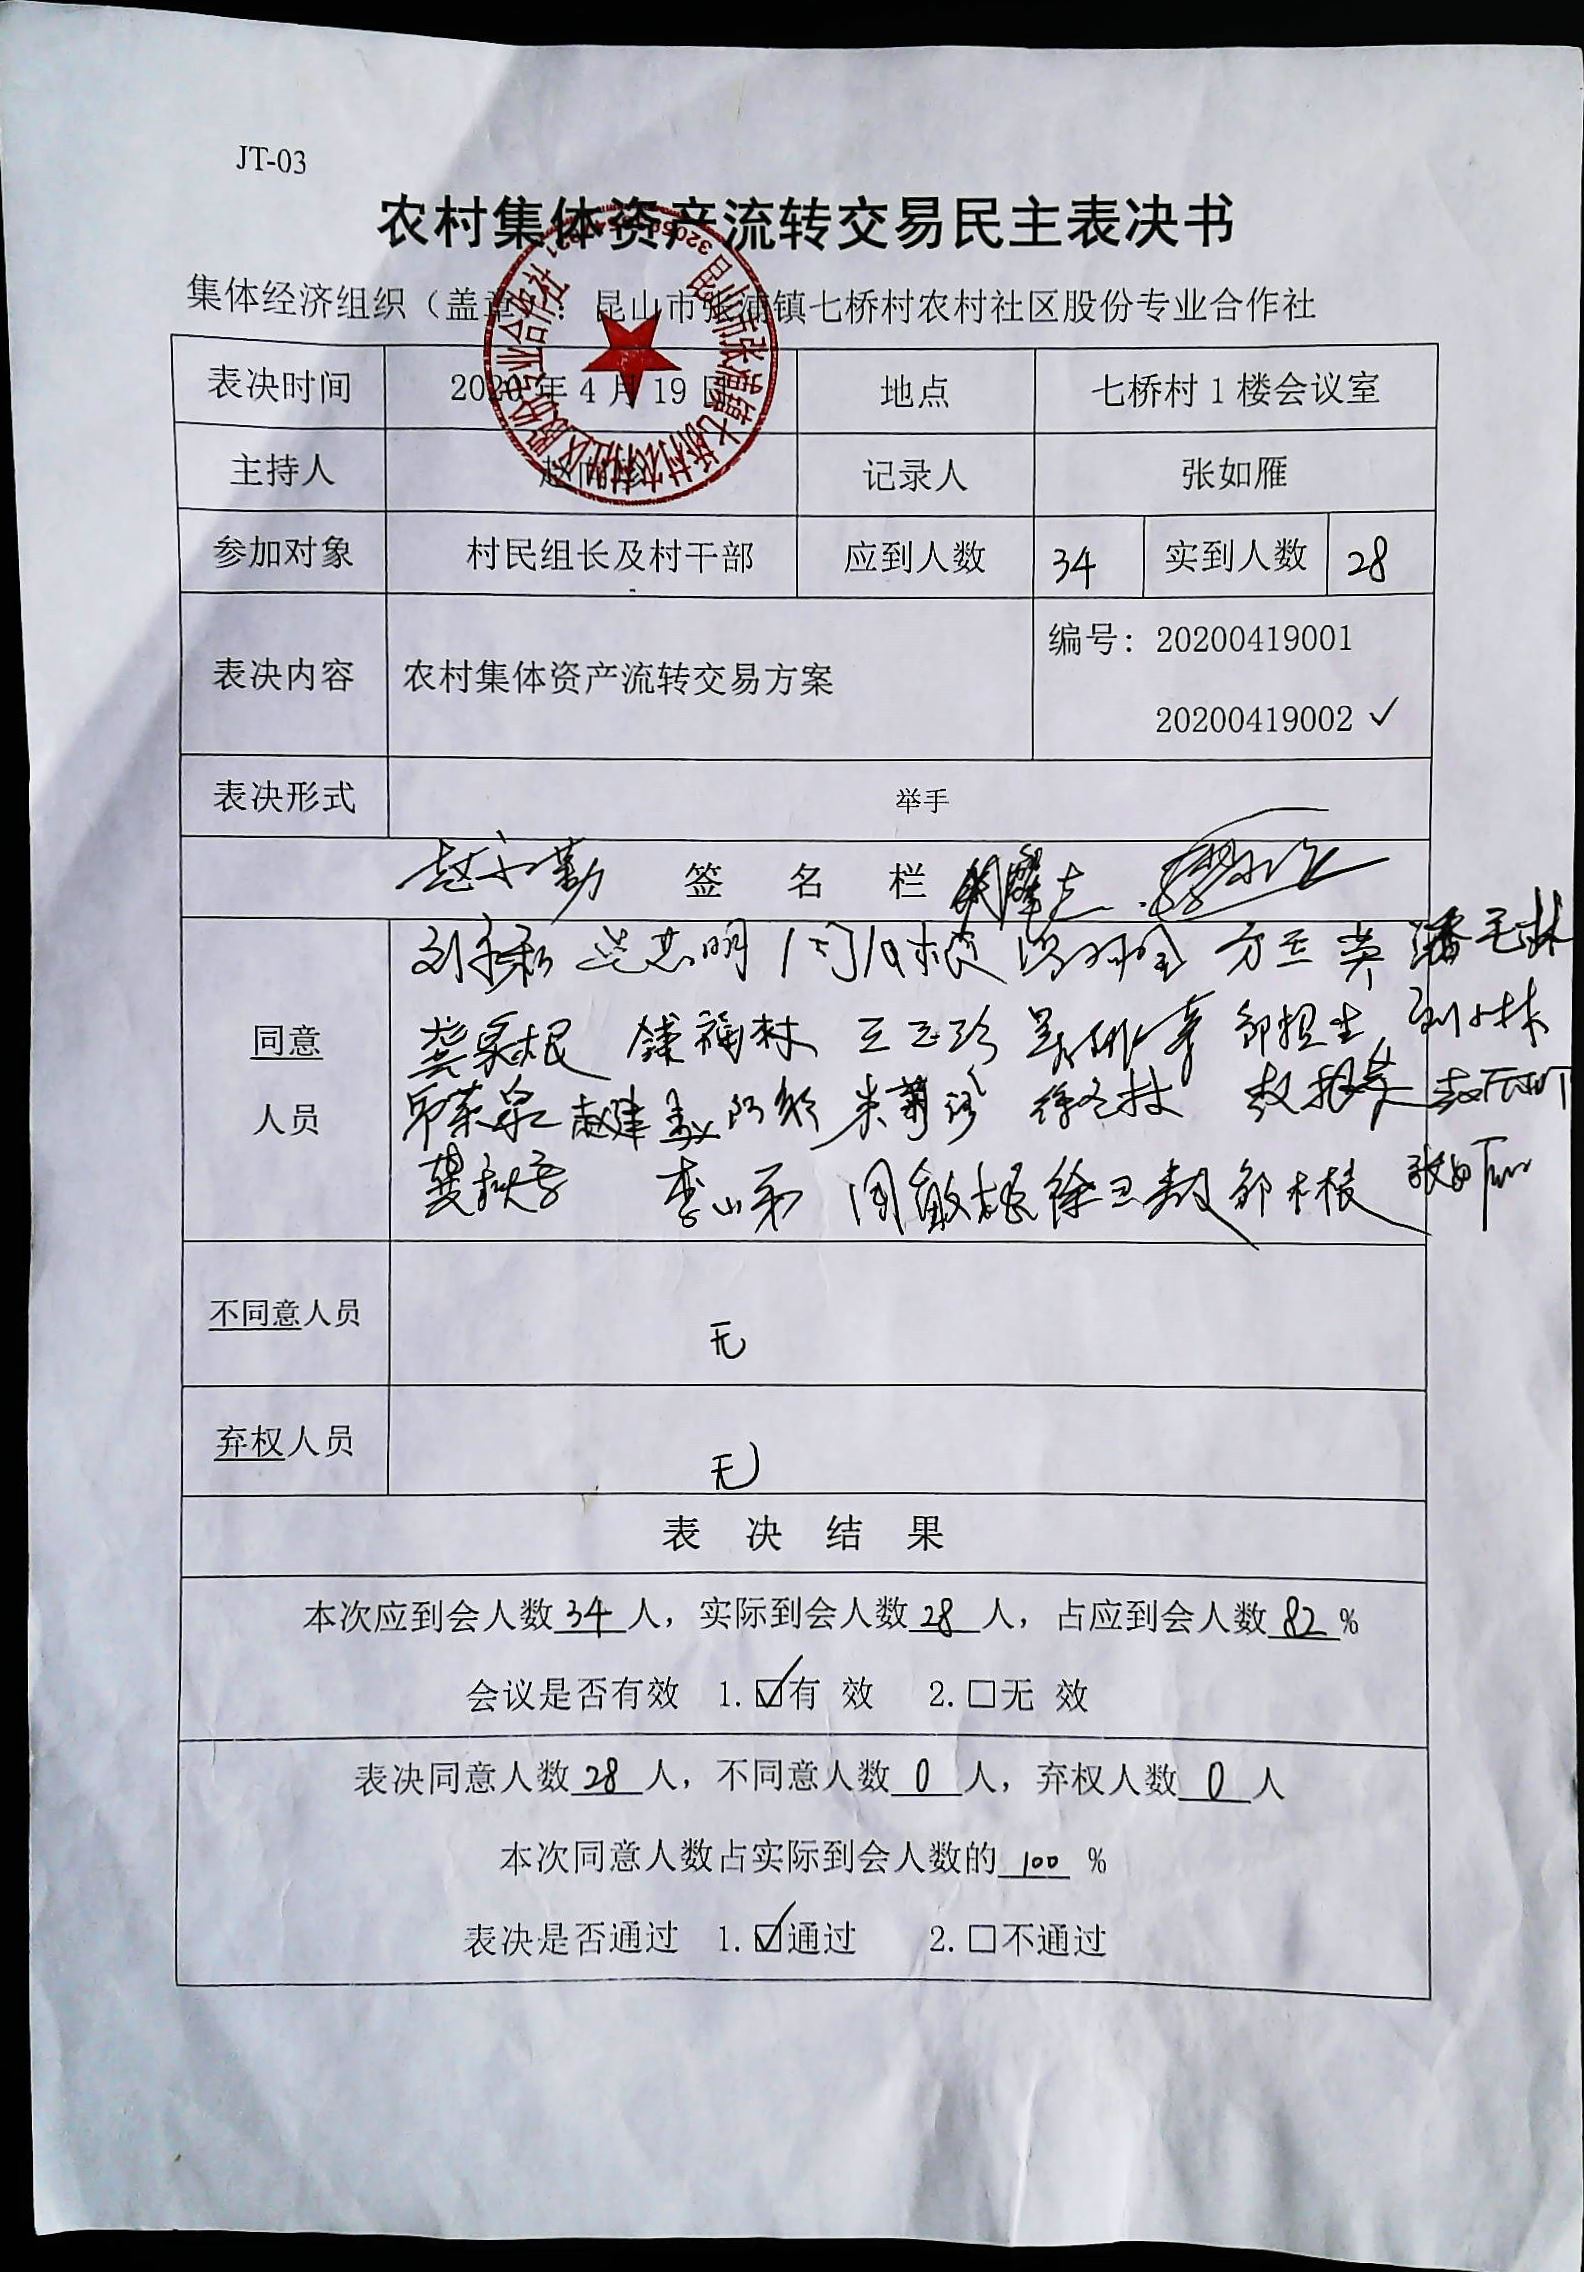 JT-03
农村集体资产流转交易民主表决书
集体经济组织（盖章）：昆山市张浦镇七桥村农村社区股份专业合作社
表决时间 2020年4月19日 地点 七桥村1楼会议室
主持人 赵 记录人 张如雁
参加对象 村民组长及村干部 应到人数 34 实到人数 28
编号：20200419001
表决内容 农村集体资产流转交易方案
20200419002 ✓
表决形式 举手
签名栏
方 英 潘毛林
龚泉根 钱福林 王玉珍 邹招生 刘小林
同意
人员
赵建 朱菊珍 徐冬林 赵振英
李山弟 周敏 徐卫 邹木根 张如雁
不同意人员 无
弃权人员 无
表决结果
本次应到会人数34人，实际到会人数28人，占应到会人数82%
会议是否有效 1.☑有效 2.□无效
表决同意人数28人，不同意人数0人，弃权人数0人
本次同意人数占实际到会人数的100%
表决是否通过 1.☑通过 2.□不通过